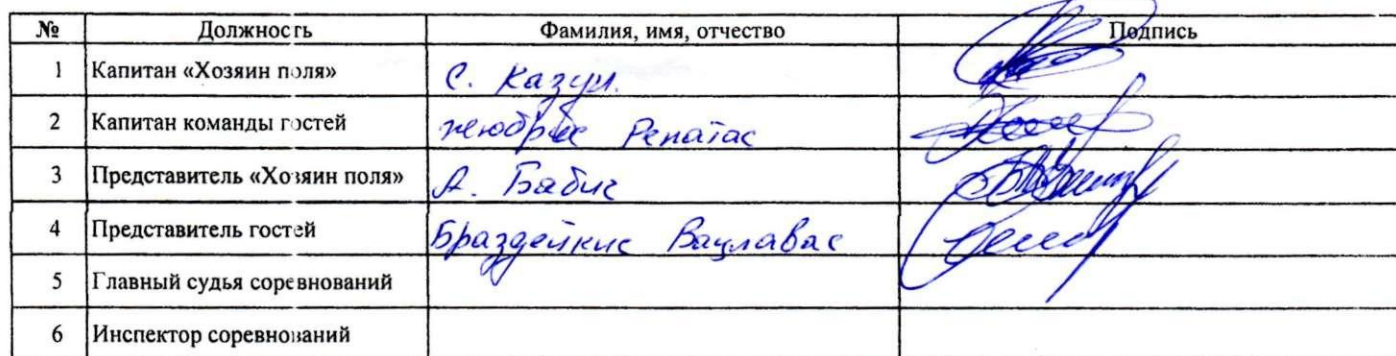 № Должность Фамилия, имя, отчество Подпись
1 Капитан «Хозяин поля» С. Казун.
2 Капитан команды гостей Ренатас
3 Представитель «Хозяин поля» А. Бабич
4 Представитель гостей Браздейкис Вацлавас
5 Главный судья соревнований
6 Инспектор соревнований